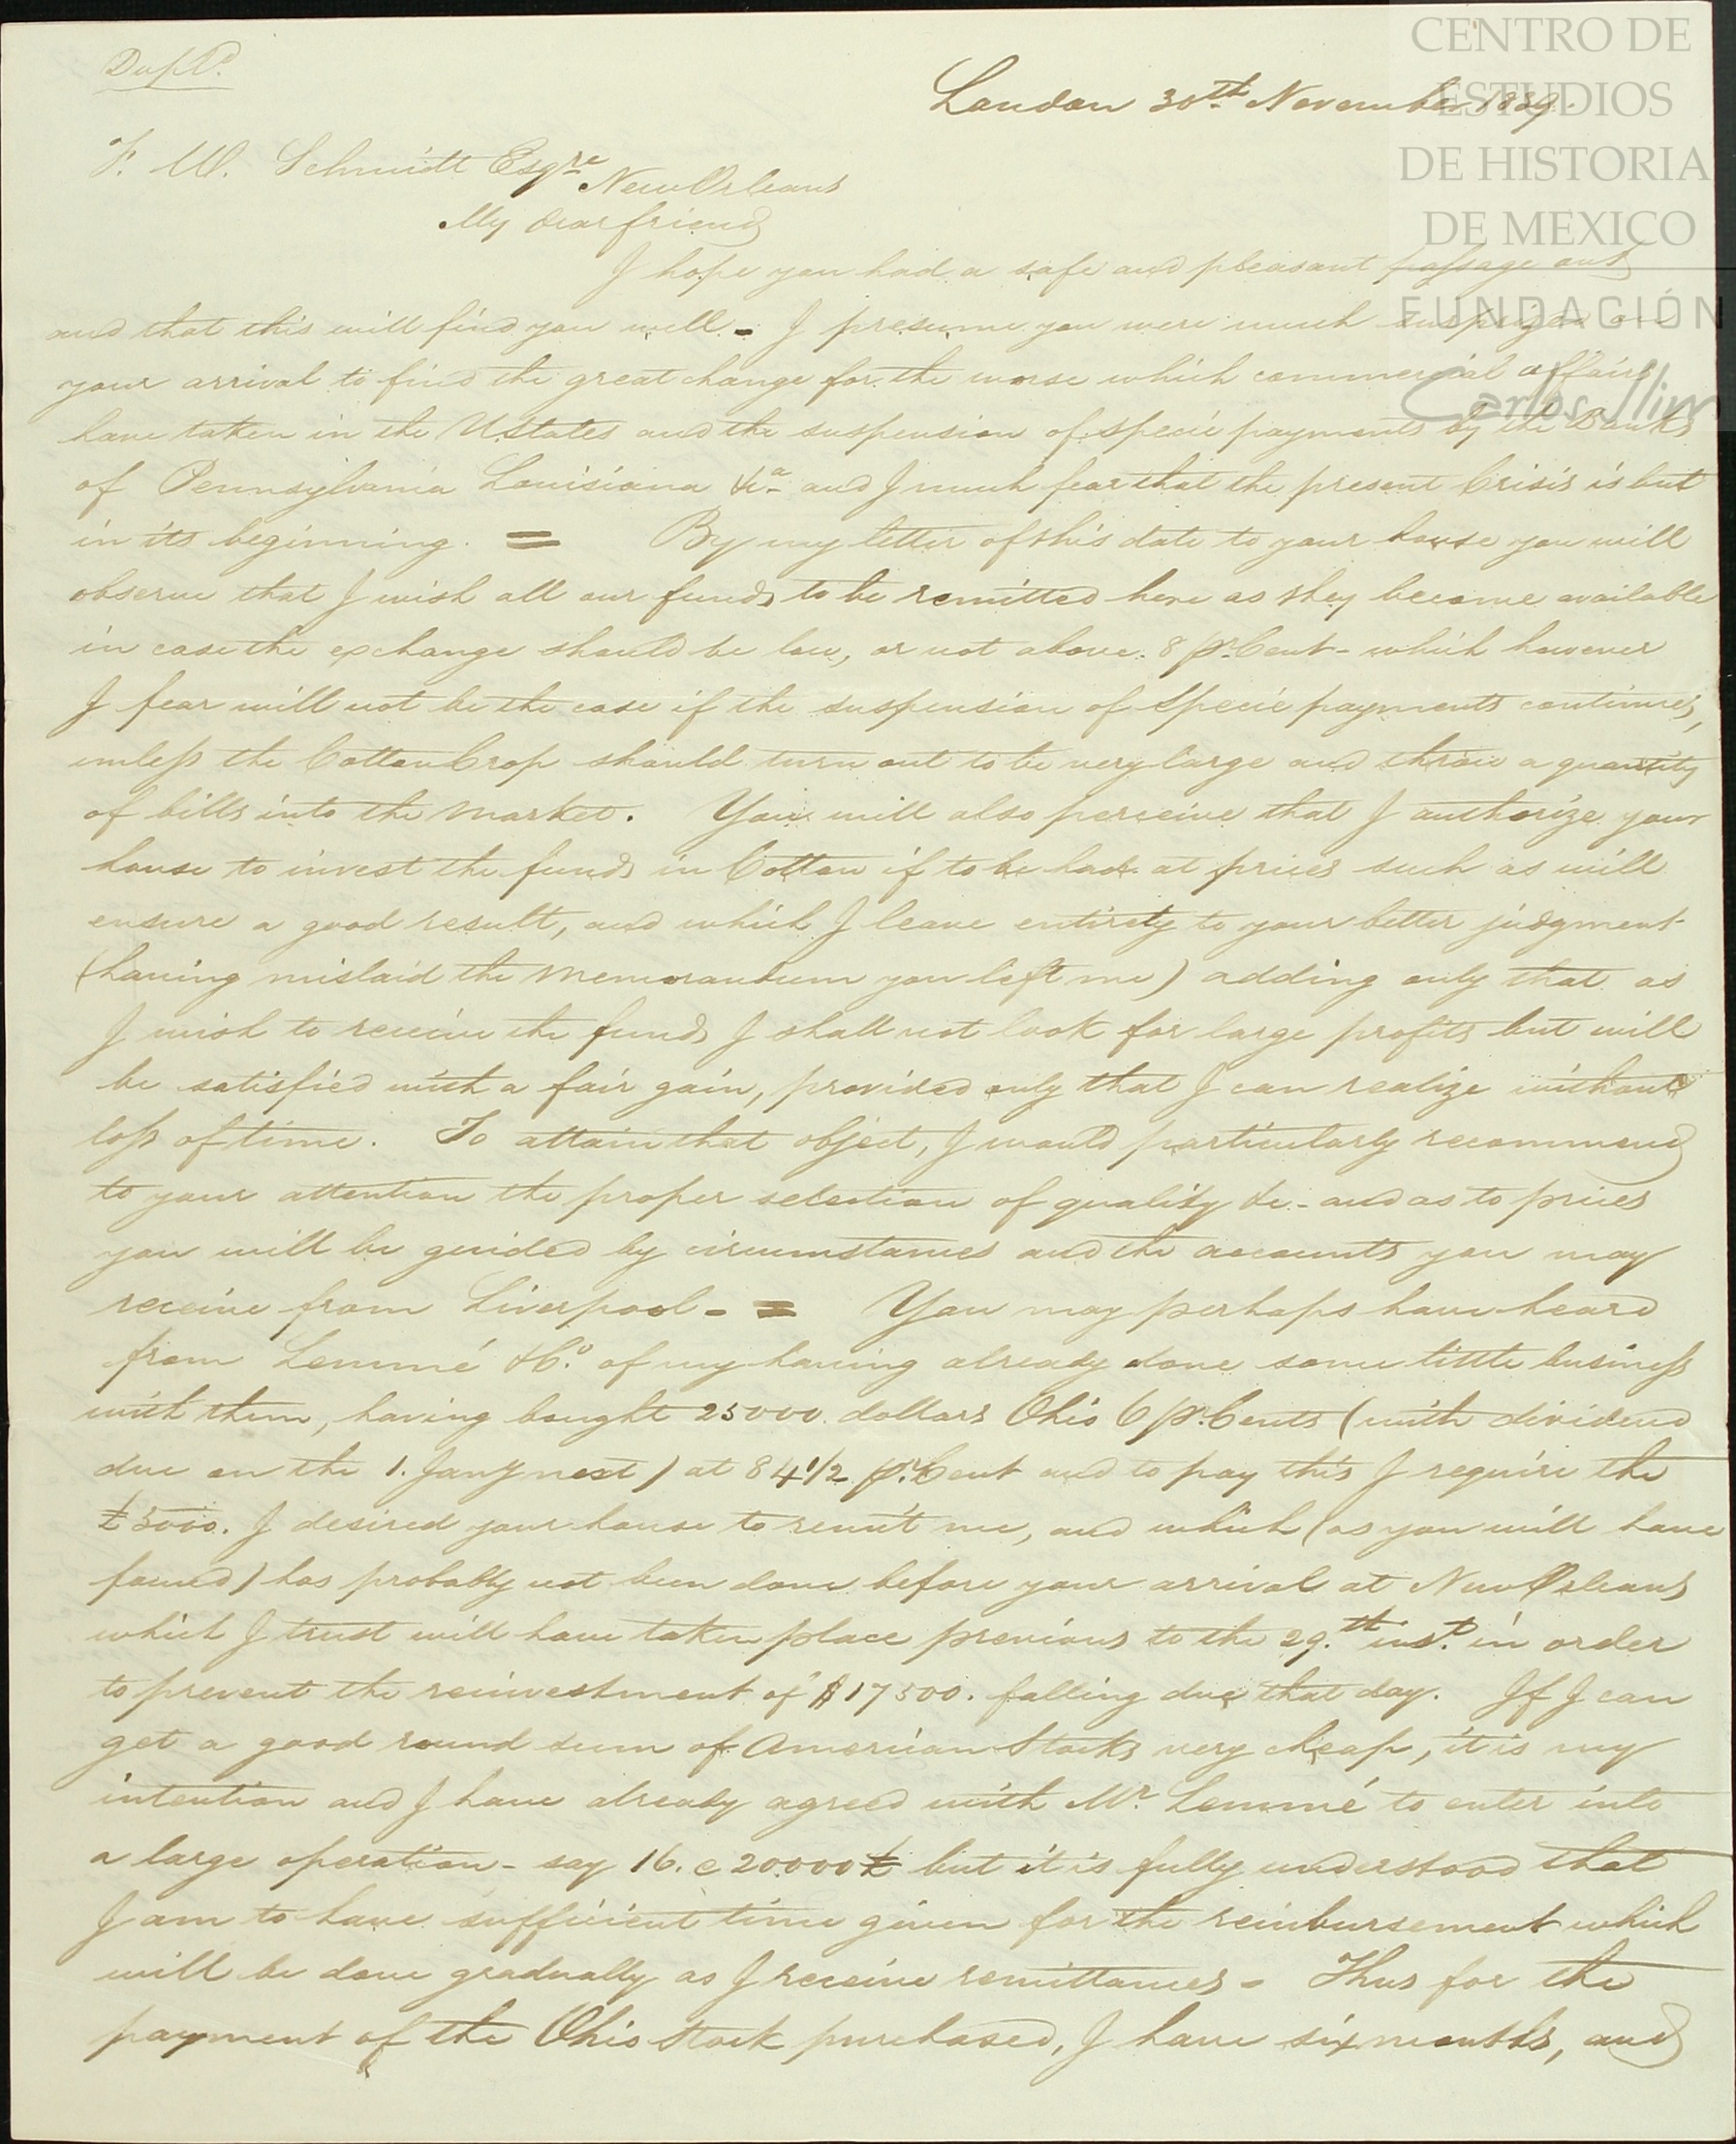 Dupl.
London 30th November 1839.
F. W. Schmidt Esqre New Orleans
My dear friend
I hope you had a safe and pleasant passage out
and that this will find you well - I presume you were much surprized on
your arrival to find the great change for the worse which commercial affairs
have taken in the UStates and the suspension of specie payments by the Banks
of Pennsylvania Louisiana &a and I much fear that the present Crisis is but
in its beginning. = By my letter of this date to your house you will
observe that I wish all our funds to be remitted here as they become available
in case the exchange should be low, or not above 8 pr Cent - which however
I fear will not be the case if the suspension of specie payments continues,
unless the Cotton Crop should turn out to be very large and throw a quantity
of bills into the market. You will also perceive that I authorize your
house to invest the funds in Cotton if to be had at prices such as will
ensure a good result, and which I leave entirely to your better judgment
(having mislaid the Memorandum you left me) adding only that as
I wish to receive the funds I shall not look for large profits but will
be satisfied with a fair gain, provided only that I can realize without
loss of time. To attain that object, I would particularly recommend
to your attention the proper selection of quality &c - and as to prices
you will be guided by circumstances and the accounts you may
receive from Liverpool - = You may perhaps have heard
from Lemmé & Co. of my having already done some little business
with them, having bought 25000 dollars Ohio 6 pr Cents (with dividend
due on the 1. Jany next) at 84 1/2 pr Cent and to pay this I require the
£5000. I desired your house to remit me, and which (as you will have
found) has probably not been done before your arrival at New Orleans
which I trust will have taken place previous to the 29th inst. in order
to prevent the reinvestment of $17500. falling due that day. If I can
get a good round sum of American Stocks very cheap, it is my
intention and I have already agreed with Mr Lemmé to enter into
a large operation - say 16. e 20000£ but it is fully understood that
I am to have sufficient time given for the reimbursement which
will be done gradually as I receive remittances - Thus for the
payment of the Ohio Stock purchased, I have six months, and
CENTRO DE
ESTUDIOS
DE HISTORIA
DE MEXICO
FUNDACIÓN
Carlos Slim